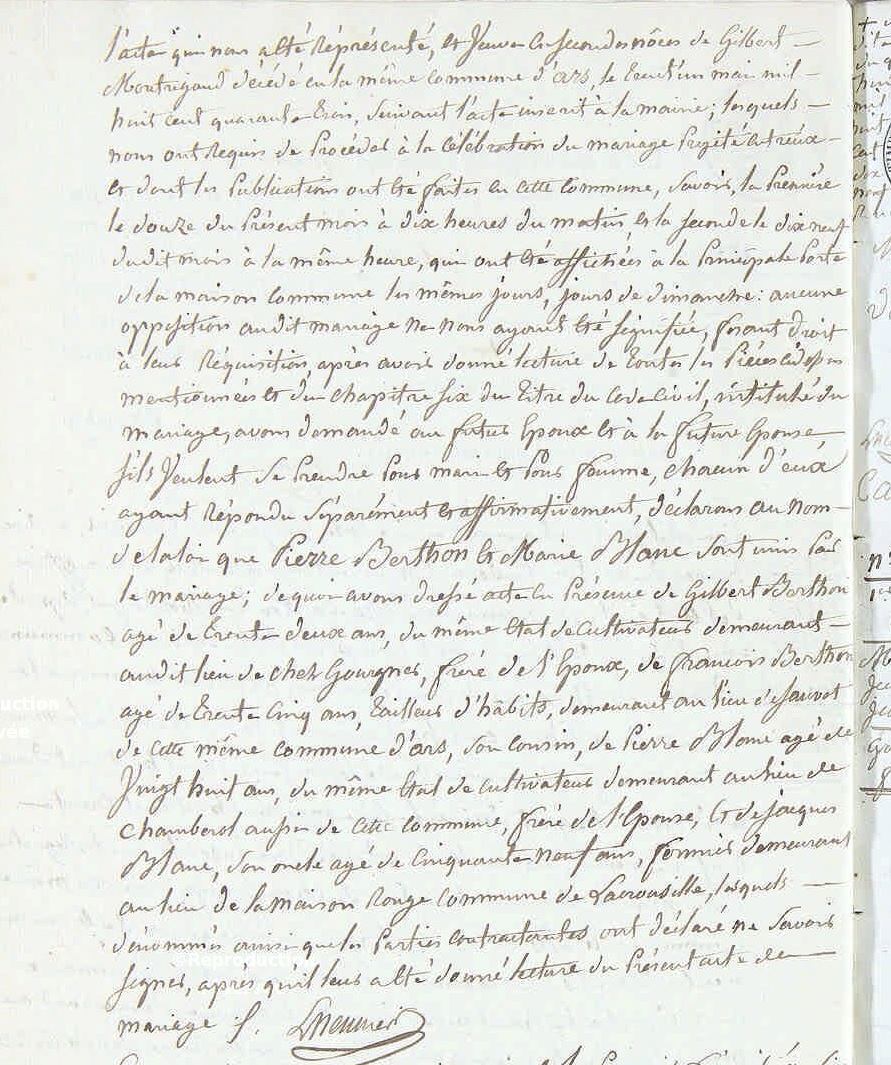 l'acte qui nous a été Représenté, et Veuve en secondes nôces de Gilbert
Montrigaud décédé en la même commune d'ars, le trent'un mai mil
huit cent quarante trois, suivant l'acte inscrit à la mairie; lesquels
nous ont Requis de Procéder à la célébration du mariage Projeté entreux
et dont les Publications ont été faites en cette Commune, Savoir, la Première
le douze du Présent mois à dix heures du matin, et la seconde le dix neuf
dudit mois à la même heure, qui ont été affichées à la Principale Porte
de la maison Commune les mêmes jours, jours de dimanche: aucune
opposition audit mariage ne nous ayant été signifiée, faisant Droit
à leur Réquisition, après avoir donné lecture de toutes les Pièces
mentionnées et du chapitre six du titre du Code Civil, intitulé du
mariage, avons demandé au futur Epoux et à la future Epouse,
s'ils Veulent se Prendre Pour mari et Pour femme, chacun d'eux
ayant Répondu séparément et affirmativement, déclarons au nom
de la loi que Pierre Berthon et Marie Blanc sont unis Par
le mariage; de quoi avons dressé acte en Présence de Gilbert Berthon
agé de trente deux ans, du même Etat de Cultivateur demeurant
audit lieu de chez Gourgnes, frère de l'Epoux, de françois Berthon
agé de trente Cinq ans, tailleur d'hâbits, demeurant au lieu de Sauvot
de cette même commune d'ars, son cousin, de Pierre Blanc agé de
Vingt huit ans, du même Etat de cultivateur demeurant au lieu de
Chamberol aussi de cette Commune, frère de l'Epouse; et de jacques
Blanc, son oncle agé de Cinquante neuf ans, fermier demeurant
au lieu de la maison Rouge Commune de Lacrouzille, lesquels
dénommés ainsi que les Parties contractantes ont déclaré ne Savoir
signer, après qu'il leur a été donné lecture du Présent acte de
mariage ./.